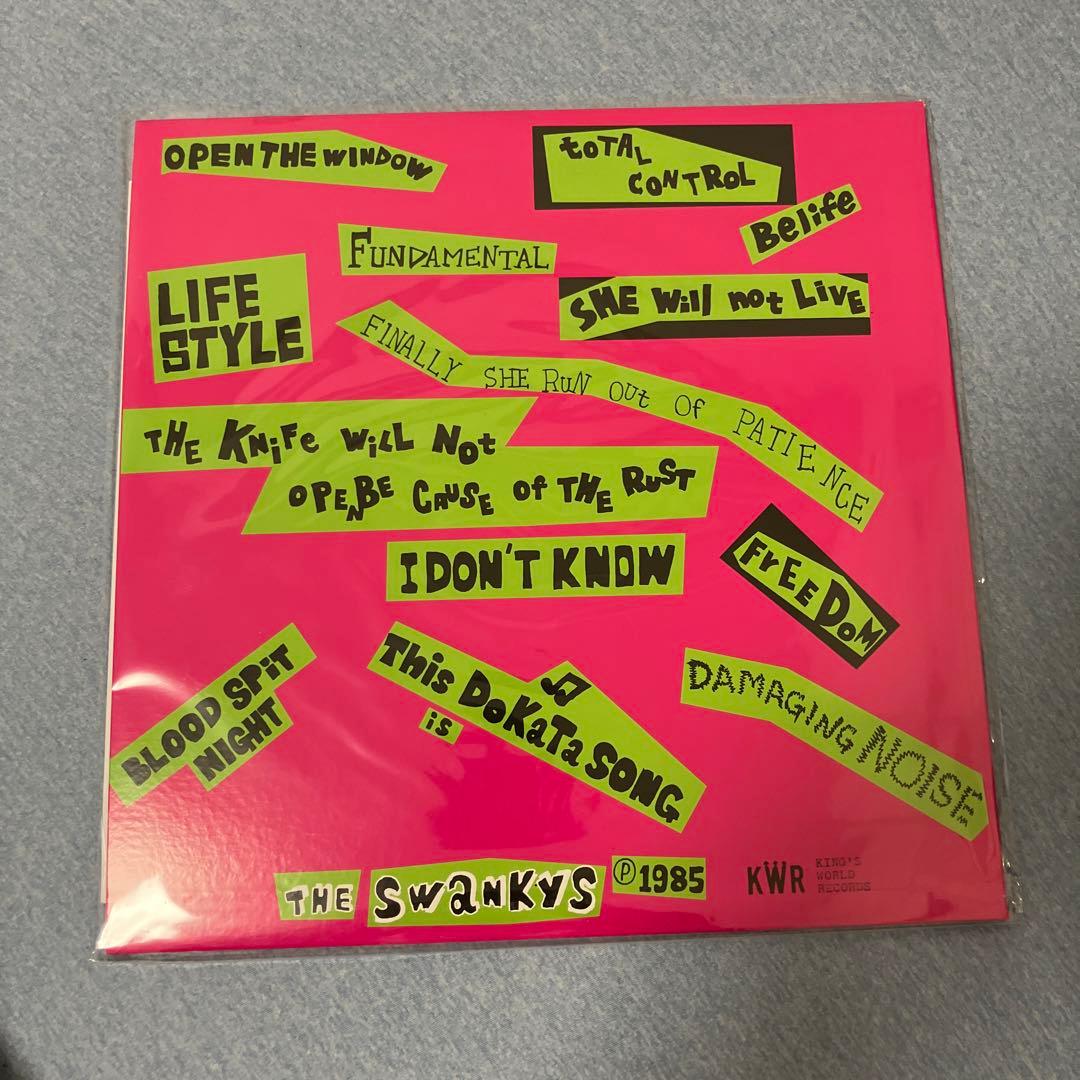 OPEN THE WINDOW
TOTAL
CONTROL
Belife
FUNDAMENTAL
LIFE
STYLE
SHE Will not LIVE
FINALLY SHE RUN Out Of PATIENCE
THE KNiFe WiLL Not
OPENBE CAUSE Of THE RUST
I DON'T KNOW
FrEEDOM
BLOOD SPiT
NIGHT
This DoKaTa SONG
is
DAMAGING NOISE
THE SWaNKYS ℗1985
KWR KING'S
WORLD
RECORDS